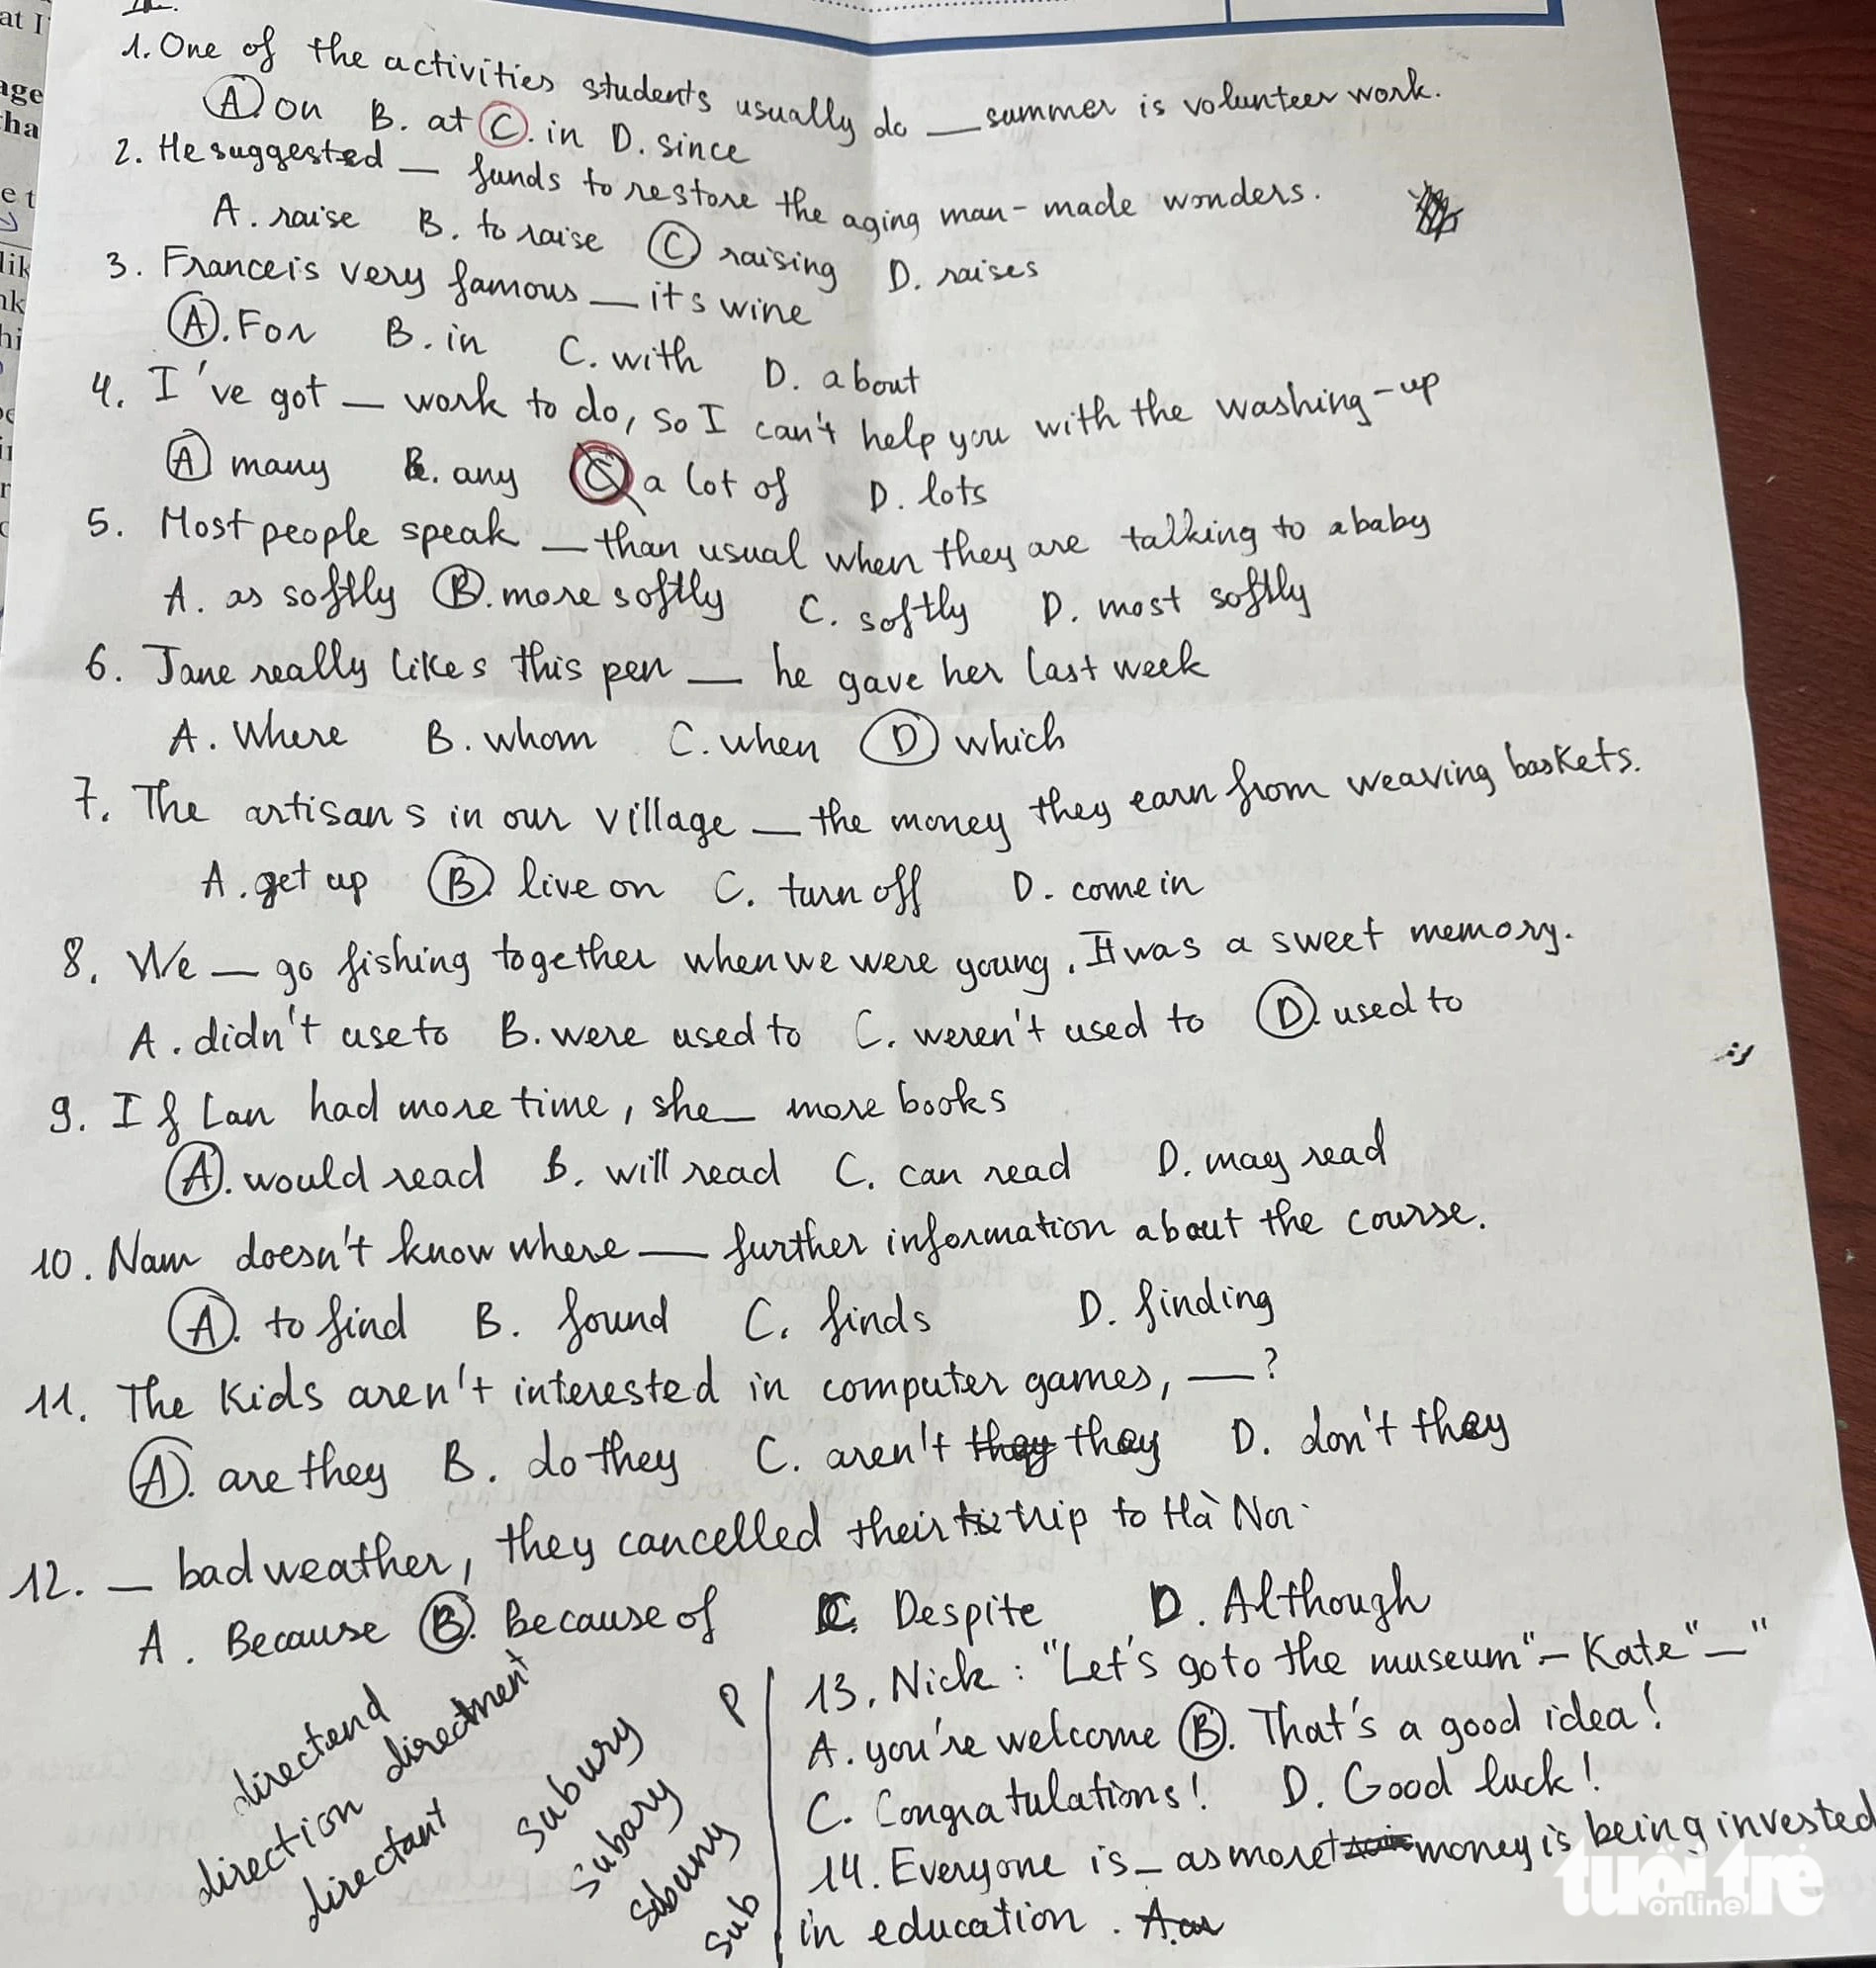 at I
age
tha
e t
lik
nk
hi
1. One of the activities students usually do __ summer is volunteer work.
A. on B. at C. in D. since
2. He suggested __ funds to restore the aging man-made wonders.
A. raise B. to raise C raising D. raises
3. France is very famous __ its wine
A. For B. in C. with D. about
4. I've got __ work to do, so I can't help you with the washing-up
A many B. any C a lot of D. lots
5. Most people speak __ than usual when they are talking to a baby
A. as softly B. more softly C. softly D. most softly
6. Jane really likes this pen __ he gave her last week
A. Where B. whom C. when D which
7. The artisans in our village __ the money they earn from weaving baskets.
A. get up B. live on C. turn off D. come in
8. We __ go fishing together when we were young. It was a sweet memory.
A. didn't use to B. were used to C. weren't used to D. used to
9. If Lan had more time, she __ more books
A. would read B. will read C. can read D. may read
10. Nam doesn't know where __ further information about the course.
A. to find B. found C. finds D. finding
11. The kids aren't interested in computer games, __?
A. are they B. do they C. aren't they they D. don't they
12. __ bad weather, they cancelled their trip to Hà Nội
A. Because B. Because of C. Despite D. Although
directend
direction directment
directant
subury
subary
sub
P
13. Nick: "Let's go to the museum" - Kate "__"
A. you're welcome B. That's a good idea!
C. Congratulations! D. Good luck!
14. Everyone is __ as more money is being invested
in education. A.
tuổi trẻ
online